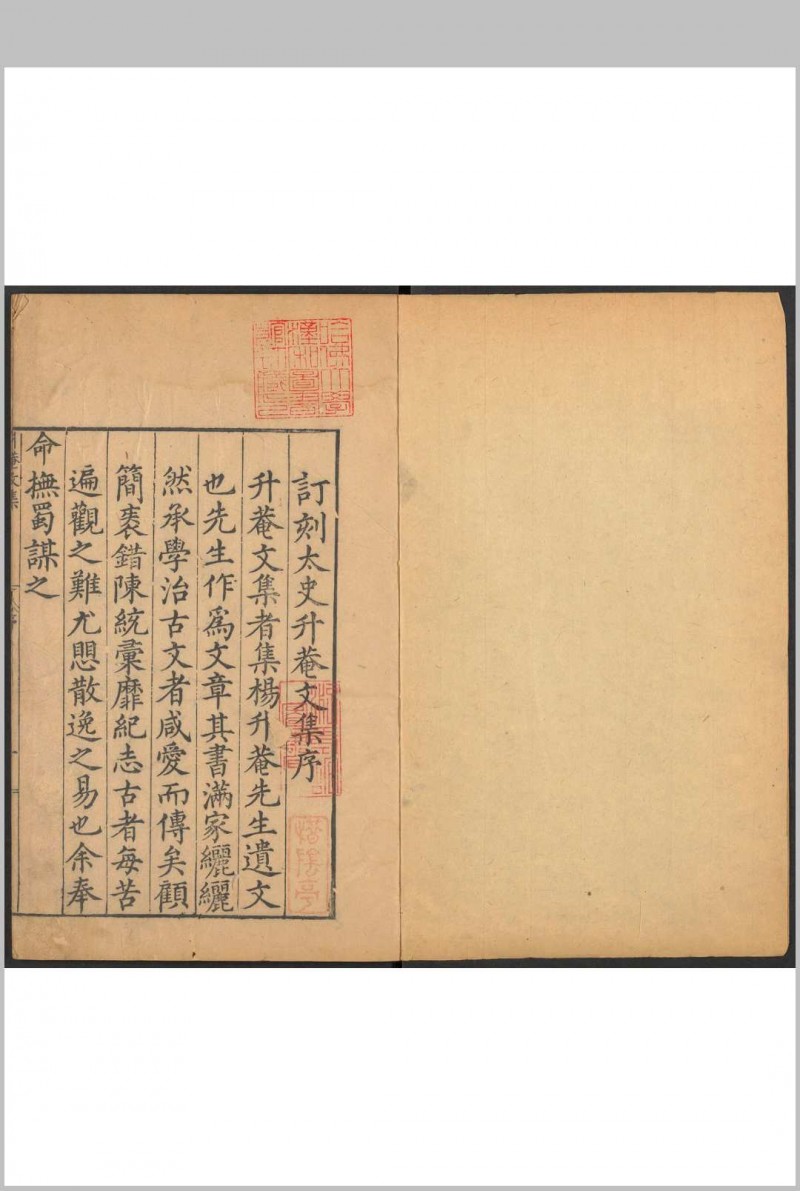 訂刻太史升菴文集序
升菴文集者集楊升菴先生遺文
也先生作爲文章其書滿家纚纚
然承學治古文者咸愛而傳矣顧
簡袠錯陳統彙靡紀志古者每苦
遍觀之難尤愳散逸之易也余奉
命撫蜀謀之
哈佛大學
漢和圖書
館珍藏印